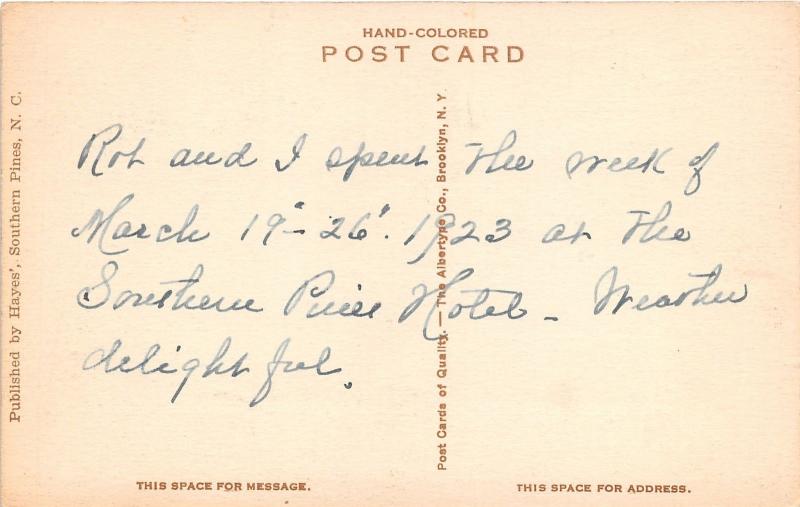 HAND-COLORED
POST CARD
Published by Hayes', Southern Pines, N. C.
Rob and I spent the week of
March 19" - 26". 1923 at the
Southern Pines Hotel - Weather
delightful.
Post Cards of Quality. — The Albertype Co., Brooklyn, N. Y.
THIS SPACE FOR MESSAGE.
THIS SPACE FOR ADDRESS.